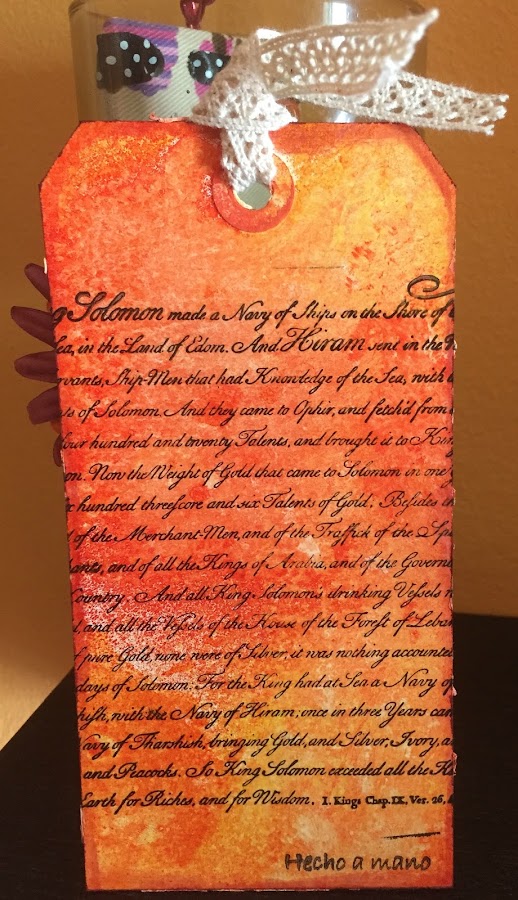 g Solomon made a Navy of Ships on the Shore of
Sea, in the Land of Edom. And Hiram sent in the
rvants, Ship-Men that had Knowledge of the Sea, with
ts of Solomon. And they came to Ophir, and fetch'd from
four hundred and twenty Talents, and brought it to Kin
on. Now the Weight of Gold that came to Solomon in one
x hundred threescore and six Talents of Gold; Besides
of the Merchant-Men, and of the Traffick of the Spi
ants, and of all the Kings of Arabia, and of the Governo
Country. And all King Solomon's drinking Vessels
d, and all the Vessels of the House of the Forest of Leba
f pure Gold, none were of Silver, it was nothing accounte
days of Solomon. For the King had at Sea a Navy of
hish, with the Navy of Hiram; once in three Years cam
avy of Tharshish, bringing Gold, and Silver, Ivory, a
and Peacocks. So King Solomon exceeded all the Ki
Earth for Riches, and for Wisdom. I. Kings Chap. IX. Ver. 26,
Hecho a mano